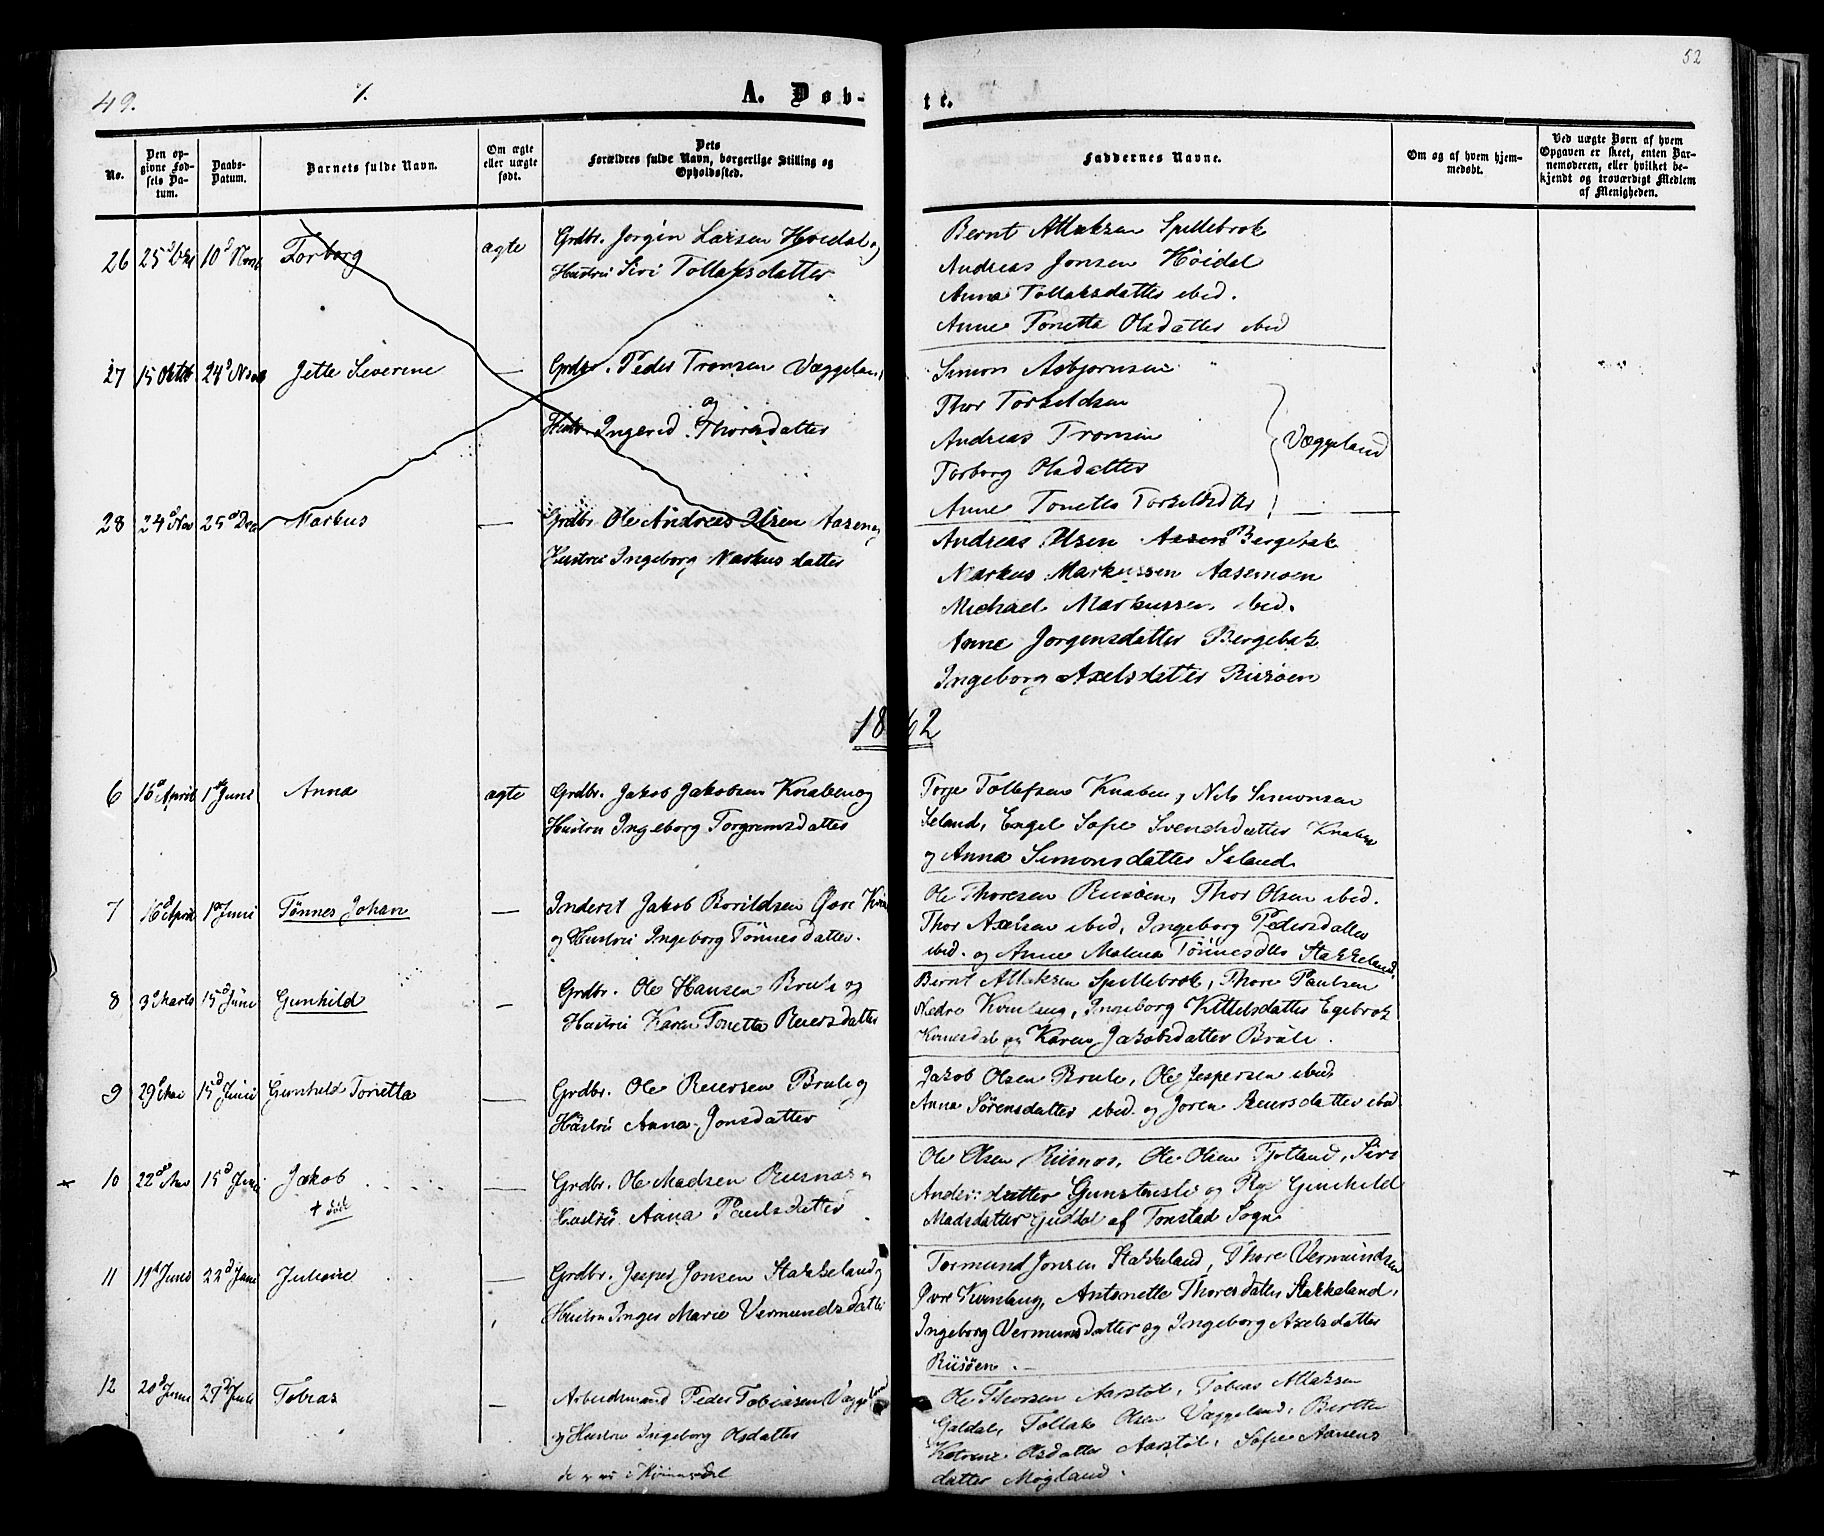 52
49.
A. Døb-
te.
No.
Den op-
givne Fød-
sels Da-
tum.
Daabs-
Datum.
Barnets fulde Navn.
Om ægte
eller uægte
født.
Dets
Forældres fulde Navn, borgerlige Stilling og
Opholdssted.
Faddernes Navne.
Om og af hvem hjem-
medøbt.
Ved uægte Børn af hvem
Opgaven er skeet, enten Bar-
nemoderen, eller hvilket be-
kjendt og troværdigt Medlem
af Menigheden.
26 Torborg ægte Grdbr. Jørgen Larsen Høidal og
Hustru Siri Tollaksdatter
Bernt Atlaksen Spillebrok
Andreas Jonsen Høidal
Anna Tollaksdatter ibid.
Anne Tonetta Olsdatter ibid
27 15 Oktob 24d Nov Jette Severine — Grdbr. Peder Tronsen Væggeland
og
Hustr. Ingerid Thorsdatter
Simon Asbjornsen
Thor Torkildsen
Andreas Tronsen
Torborg Olsdatter
Anne Tonette Torkildsdtr
Væggeland
28 24d Nov 25d Dec Markus — Grdbr. Ole Andreas Olsen Aasen og
Hustru Ingeborg Markusdatter
Andreas Olsen Aasen Bergebak
Markus Markussen Aasemoen
Michael Markussen ibid.
Anne Jorgensdatter Bergebak
Ingeborg Axelsdatter Risøen
1862
6 16d April 1d Juni Anna ægte Grdbr. Jakob Jakobsen Knaben og
Hustru Ingeborg Torgrimsdatter
Torje Tollefsen Knaben, Nils Simonsen
Seland, Engel Sofie Svendsdatter Knaben
og Anna Simonsdatter Seland
7 16d April 1d Juni Tønnes Johan — Inderst Jakob Borildsen Øvre
og Hustru Ingeborg Tønnesdatter.
Ole Thoresen Risøen, Thor Olsen ibid.
Thor Axelsen ibid, Ingeborg Pedersdatter
ibid. og Anne Malena Tönnesdtr Stakkeland.
8 3d Marts 15d Juni Gunhild — Grdbr. Ole Hansen Brule og
Hustru Karen Tonetta Reiersdatter
Bernt Atlaksen Spillebrok, Thore Paulsen
Nedre Kvinlaug, Ingeborg Kittelsdatter Egebrok
Kvinesdal og Karen Jakobsdatter Brule.
9 29d Mai 15d Juni Gunhild Tonetta — Grdbr. Ole Reiersen Brule og
Hustru Anna Jonsdatter
Jakob Olsen Brule, Ole Jespersen ibid
Anna Sörensdatter ibid. og Joren Reiersdatter ibid
10 22d Mai 15d Juni Jakob — Grdbr. Ole Madsen Risnes og
+ död
Hustru Anna Paulsdatter
Ole Olsen Risnes, Ole Olsen Fjotland, Siri
Anders datter Gunstensli og Pig Gunhild
Madsdatter Guddal af Tonstad Sogn
11 11d Juni 22d Juni Juliane — Grdbr. Jesper Jonsen Stakkeland og
Hustru Inger Marie Vermundsdatter
Tormund Jonsen Stakkeland, Thore Vermundsen
Øvre Kvinlaug, Antonette Thoresdatter Stakkeland,
Ingeborg Vermundsdatter og Ingeborg Axelsdatter
Risøen.
12 20d Juni 27d Juli Tobias — Arbeidsmand Peder Tobiassen Væggeland
og Hustru Ingeborg Olsdatter
Ole Thorsen Aarstøl, Tobias Atlaksen
Galdal, Tollak Olsen Væggeland, Berthe
Katrine Olsdatter Aarstøl, Sofie Aanens
datter Mogland.